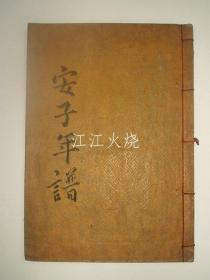 安子年譜
江江火烧